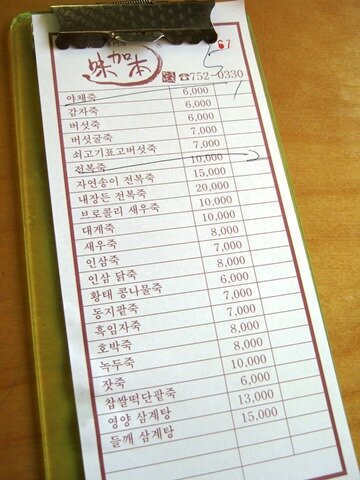 67
5
味加本
☎752-0330
야채죽 6,000 1
감자죽 6,000
버섯죽 6,000
버섯굴죽 7,000
쇠고기표고버섯죽 7,000
전복죽 10,000
자연송이 전복죽 15,000
내장든 전복죽 20,000
브로콜리 새우죽 10,000
대게죽 10,000
새우죽 8,000
인삼죽 7,000
인삼 닭죽 8,000
황태 콩나물죽 6,000
동지팥죽 7,000
흑임자죽 7,000
호박죽 8,000
녹두죽 8,000
잣죽 10,000
찹쌀떡단팥죽 6,000
영양 삼계탕 13,000
들깨 삼계탕 15,000